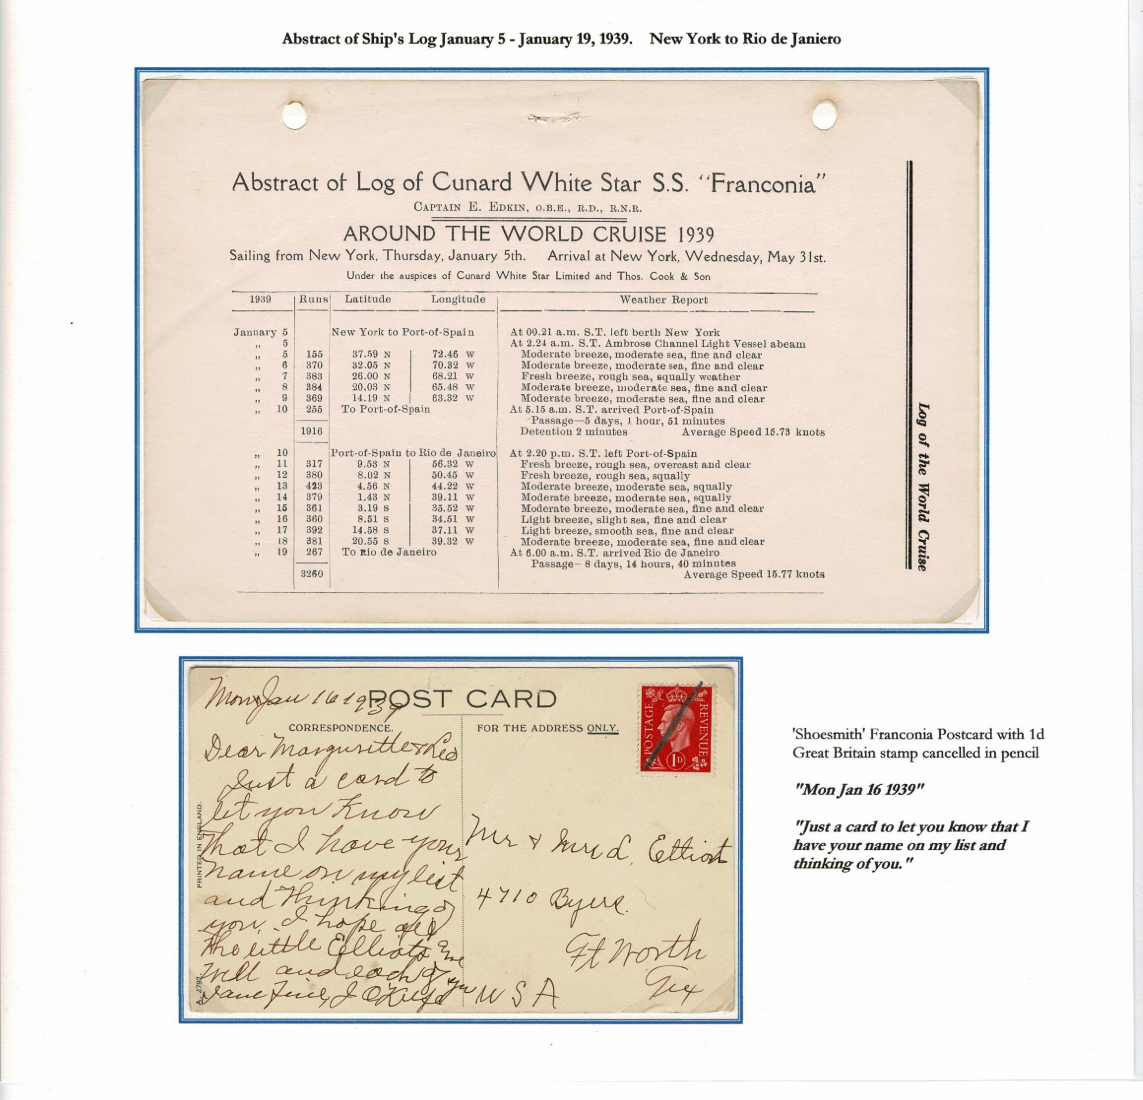 Abstract of Ship's Log January 5 - January 19, 1939. New York to Rio de Janiero
Abstract of Log of Cunard White Star S.S. "Franconia"
CAPTAIN E. EDKIN, O.B.E., R.D., R.N.R.
AROUND THE WORLD CRUISE 1939
Sailing from New York, Thursday, January 5th. Arrival at New York, Wednesday, May 31st.
Under the auspices of Cunard White Star Limited and Thos. Cook & Son
1939 Runs Latitude Longitude Weather Report
January 5 New York to Port-of-Spain At 00.21 a.m. S.T. left berth New York
,, 5 At 2.24 a.m. S.T. Ambrose Channel Light Vessel abeam
,, 5 155 37.59 N 72.46 W Moderate breeze, moderate sea, fine and clear
,, 6 370 32.05 N 70.32 W Moderate breeze, moderate sea, fine and clear
,, 7 383 26.00 N 68.21 W Fresh breeze, rough sea, squally weather
,, 8 384 20.03 N 65.48 W Moderate breeze, moderate sea, fine and clear
,, 9 369 14.19 N 63.32 W Moderate breeze, moderate sea, fine and clear
,, 10 255 To Port-of-Spain At 5.15 a.m. S.T. arrived Port-of-Spain
Passage—5 days, 1 hour, 51 minutes
1916 Detention 2 minutes Average Speed 15.73 knots
,, 10 Port-of-Spain to Rio de Janeiro At 2.20 p.m. S.T. left Port-of-Spain
,, 11 317 9.53 N 56.32 W Fresh breeze, rough sea, overcast and clear
,, 12 380 8.02 N 50.45 W Fresh breeze, rough sea, squally
,, 13 423 4.56 N 44.22 W Moderate breeze, moderate sea, squally
,, 14 379 1.43 N 39.11 W Moderate breeze, moderate sea, squally
,, 15 361 3.19 S 35.52 W Moderate breeze, moderate sea, fine and clear
,, 16 360 8.51 S 34.51 W Light breeze, slight sea, fine and clear
,, 17 392 14.58 S 37.11 W Light breeze, smooth sea, fine and clear
,, 18 381 20.55 S 39.32 W Moderate breeze, moderate sea, fine and clear
,, 19 267 To Rio de Janeiro At 6.00 a.m. S.T. arrived Rio de Janeiro
Passage—8 days, 14 hours, 40 minutes
3260 Average Speed 15.77 knots
Log of the World Cruise
Mon Jan 16 1939
POST CARD
CORRESPONDENCE.
FOR THE ADDRESS ONLY.
POSTAGE REVENUE
1D
Dear Margueritte & Leo
Just a card to
let you know
that I have your
name on my list
and thinking of
you. I hope all
the little Elliots are
well and each of you
same
PRINTED IN ENGLAND.
Mr & Mrs L. Elliott
4710 Byers.
Ft Worth
Tex
USA
'Shoesmith' Franconia Postcard with 1d
Great Britain stamp cancelled in pencil
"Mon Jan 16 1939"
"Just a card to let you know that I
have your name on my list and
thinking of you."